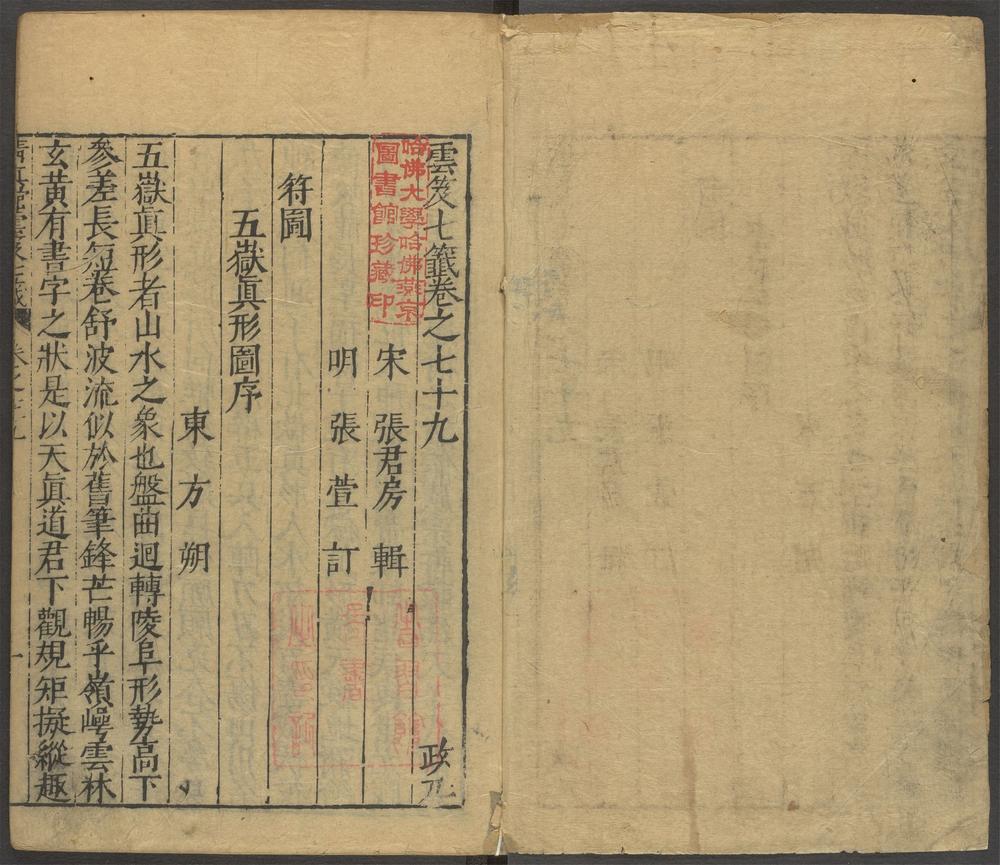 雲笈七籤卷之七十九
政
哈佛大學哈佛燕京
圖書館珍藏印
宋 張君房 輯
明 張萱 訂
符圖
五嶽眞形圖序
東方朔
五嶽眞形者山水之象也盤曲迴轉陵阜形勢高下
參差長短卷舒波流似於舊筆鋒芒暢乎嶺崿雲林
玄黄有書字之狀是以天眞道君下觀規矩擬縱趣
卷之七十九
一